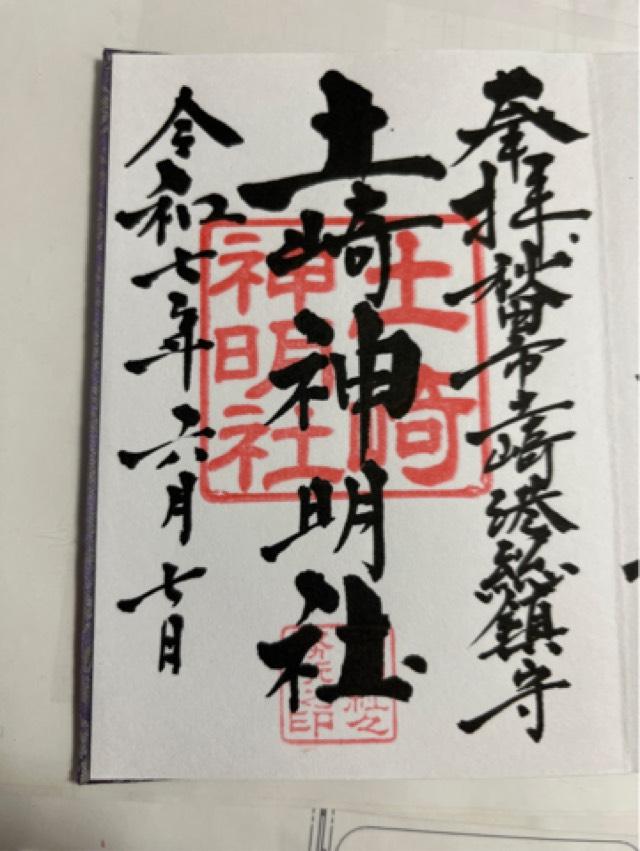 奉拝 秋田市土崎港総鎮守
土崎神明社
令和七年六月七日
土崎
神明社